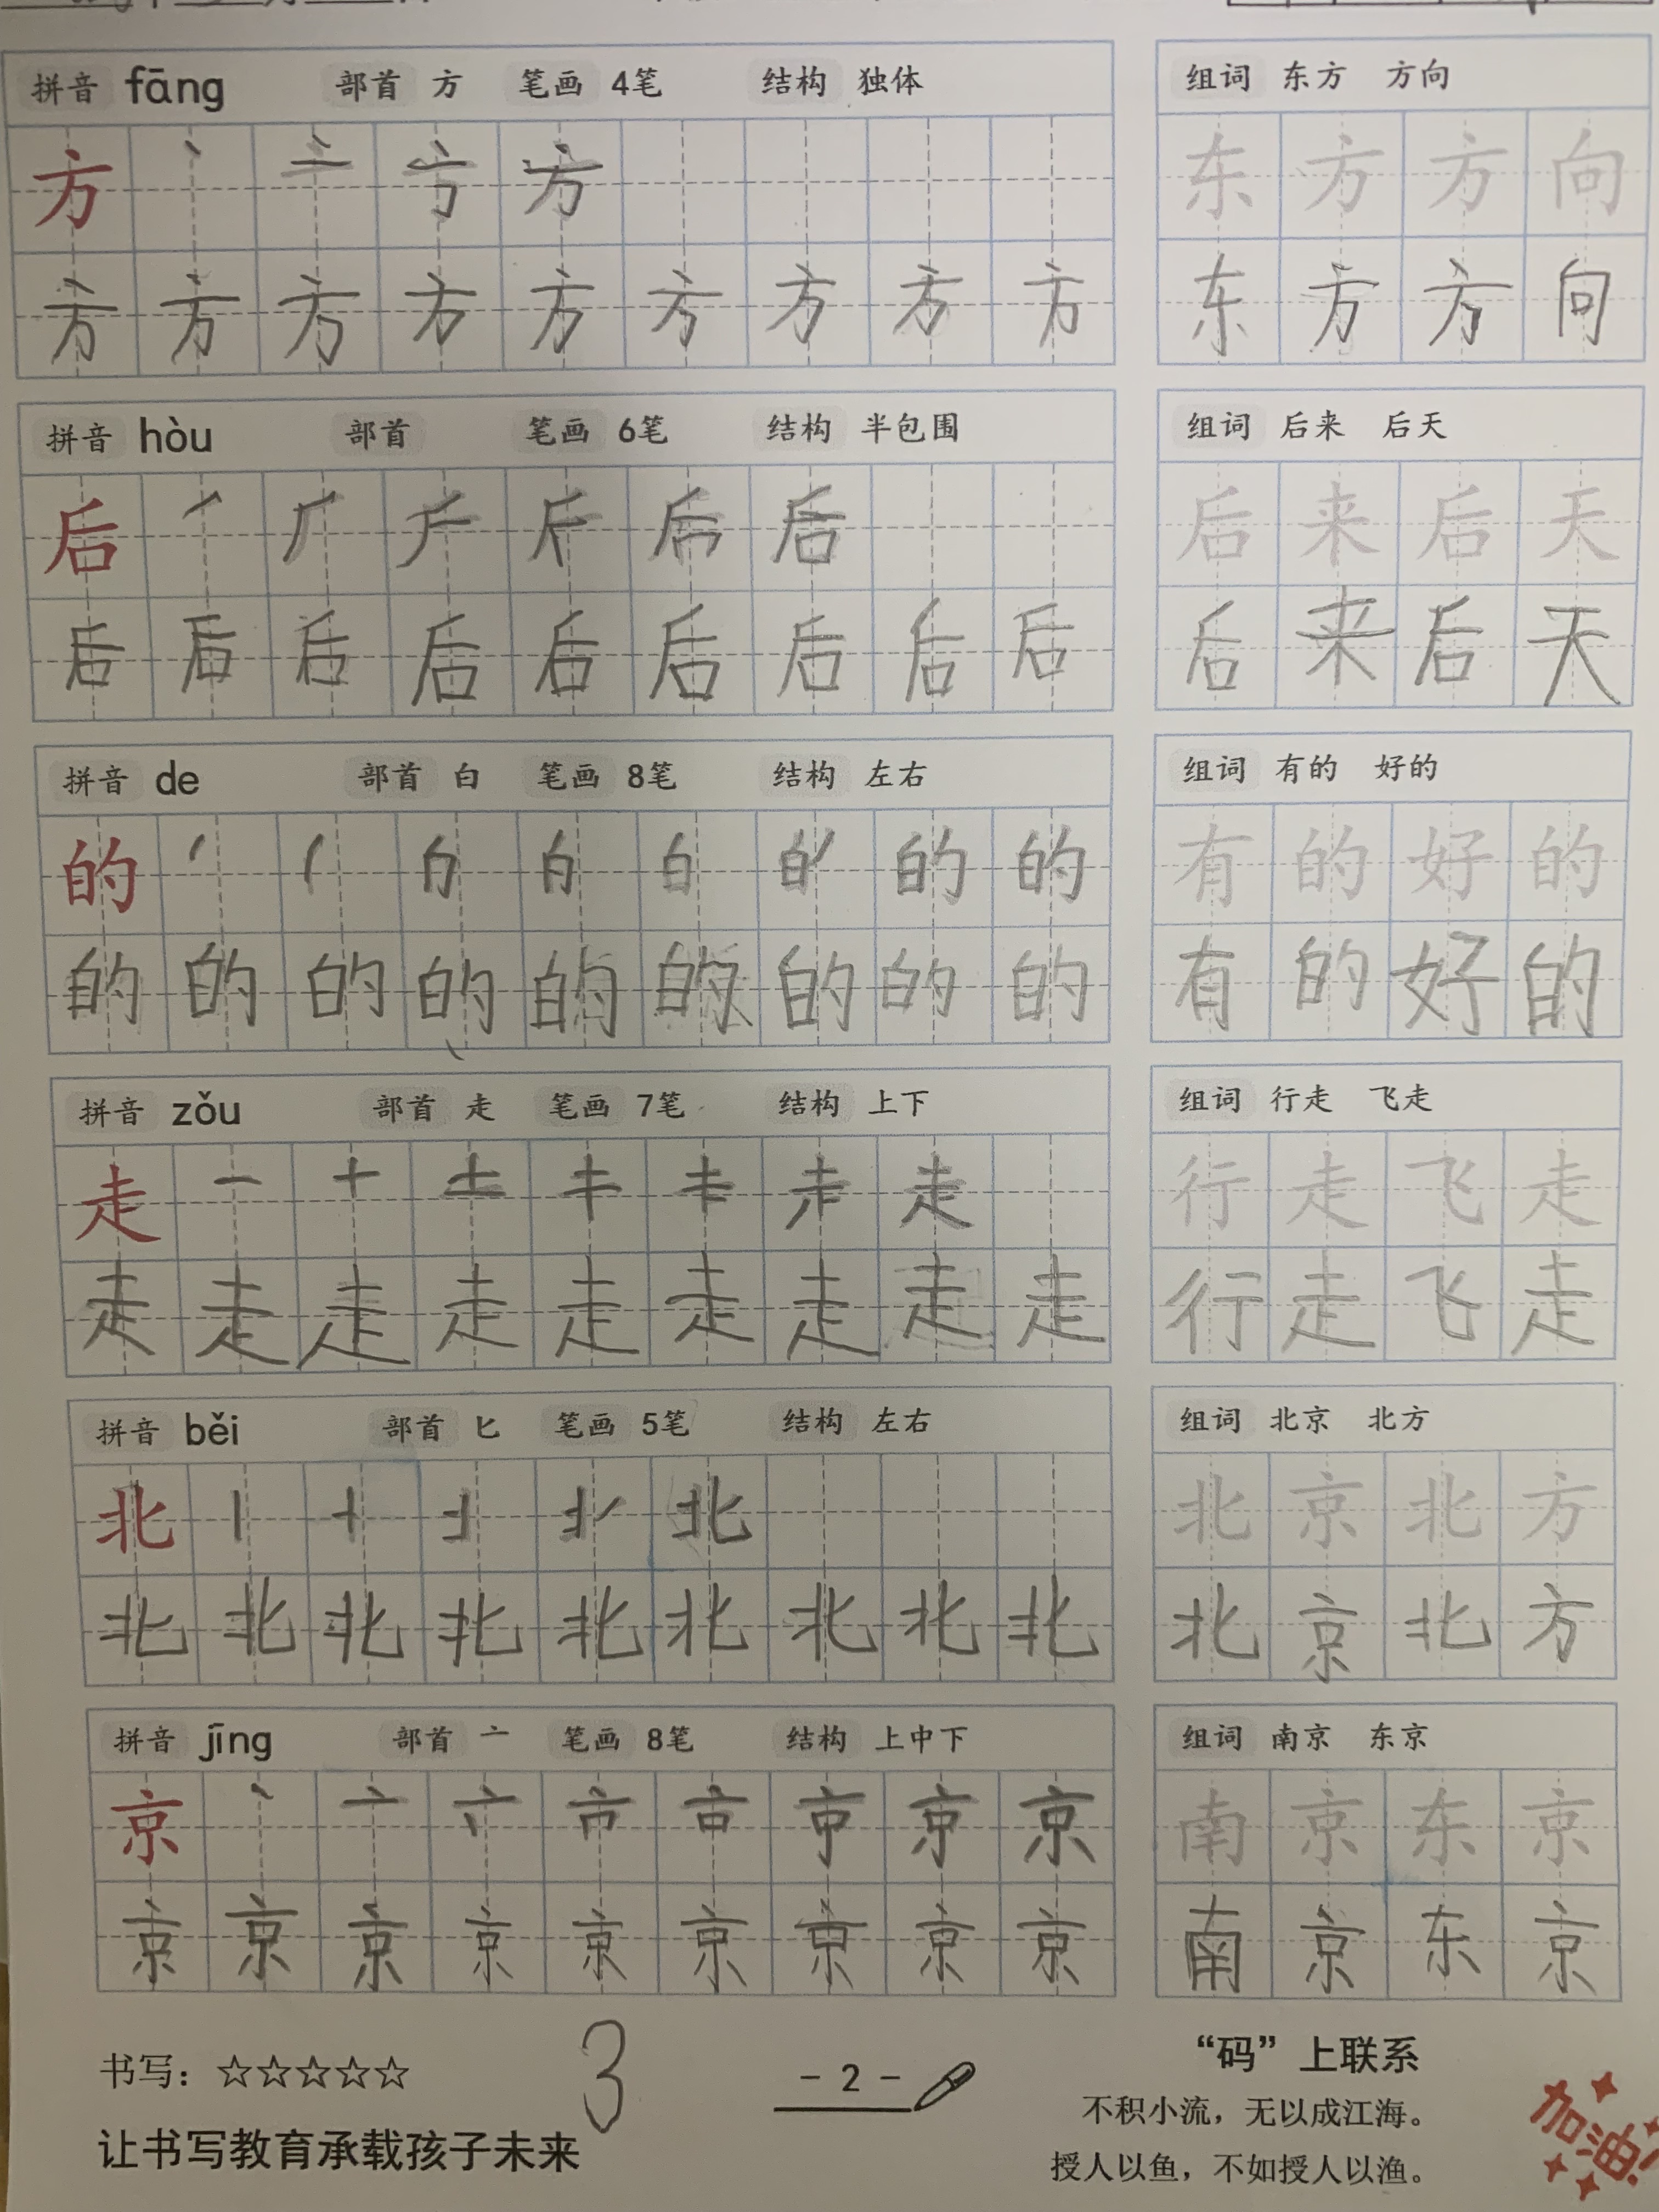 拼音 fāng 部首 方 笔画 4笔 结构 独体 组词 东方 方向
方 丶 亠 方 东 方 方 向
方 方 方 方 方 方 方 方 方 东 方 方 向
拼音 hòu 部首 笔画 6笔 结构 半包围 组词 后来 后天
后 丿 厂 后 后 来 后 天
后 后 后 后 后 后 后 后 后 后 来 后 天
拼音 de 部首 白 笔画 8笔 结构 左右 组词 有的 好的
的 丿 白 的 的 有 的 好 的
的 的 的 的 的 的 的 的 的 有 的 好 的
拼音 zǒu 部首 走 笔画 7笔 结构 上下 组词 行走 飞走
走 一 十 土 走 行 走 飞 走
走 走 走 走 走 走 走 走 走 行 走 飞 走
拼音 běi 部首 匕 笔画 5笔 结构 左右 组词 北京 北方
北 丨 北 北 京 北 方
北 北 北 北 北 北 北 北 北 北 京 北 方
拼音 jīng 部首 亠 笔画 8笔 结构 上中下 组词 南京 东京
京 丶 亠 京 南 京 东 京
京 京 京 京 京 京 京 京 京 南 京 东 京
书写：☆☆☆☆☆ 3 - 2 - “码”上联系
不积小流，无以成江海。
让书写教育承载孩子未来 授人以鱼，不如授人以渔。
加油！